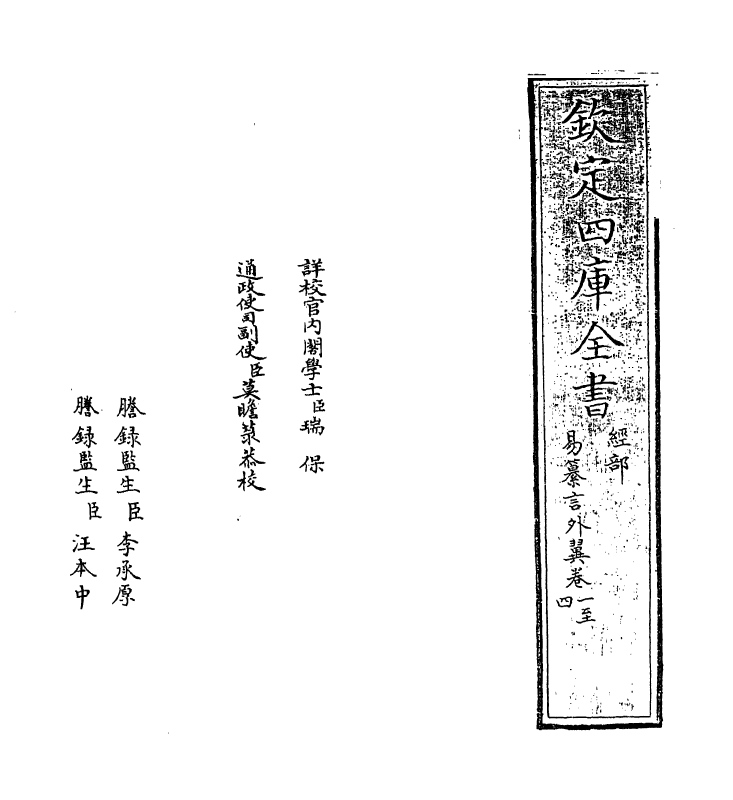 欽定四庫全書
經部
易纂言外翼卷一至四
詳校官內閣學士臣瑞保
通政使司副使臣莫瞻菉恭校
謄録監生臣李承原
謄録監生臣汪本中